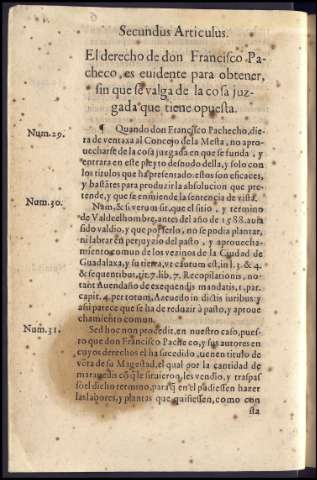 Secundus Articulus.
El derecho de don Francisco Pa-
checo, es euidente para obtener,
sin que se valga de la cosa juz-
gada que tiene opuesta.
Num.29.
¶ Quando don Francisco Pachecho, die
ra de ventaxa al Concejo de la Mesta, no apro-
uecharse de la cosa juzgada en que se funda, y
entrara en este pleyto desnudo della, y solo con
los titulos que ha presentado: estos son eficaces,
y bastātes para produzir la absolucion que pre-
tende, y que se enmiende la sentencia de vista.
Num.30.
Nam, & si verum sit, que el sitio, y termino
de Valdeelhombre, antes del año de 1588. aua
sido valdio, y que por serlo, no se podia plantar,
ni labrar en perjuyzio del pasto, y aprouecha-
miento comun de los vezinos de la Ciudad de
Guadalaxa, y su tierra, vt cautum est, in l. 3. & 4.
& sequentibus, tit. 7. lib. 7. Recopilationis, no-
tant Auendaño de exequendis mandatis, 1. par.
capit. 4. per totum, Azeuedo in dictis iuribus: y
assi parece que se ha de reduzir à pasto, y aproue
chamiento comun.
Num.31.
Sed hoc non procedit, en nuestro caso, pues-
to que don Francisco Pacheco, y sus autores en
cuyos derechos el ha sucedido, tienen titulo de
vēta de su Magestad, el qual por la cantidad de
marauedis cō q̄ le siruieron, les vendio, y traspas
sò el dicho termino, para q̄ en el pudiessen hazer
las labores, y plantas que quisiessen, como con
sta